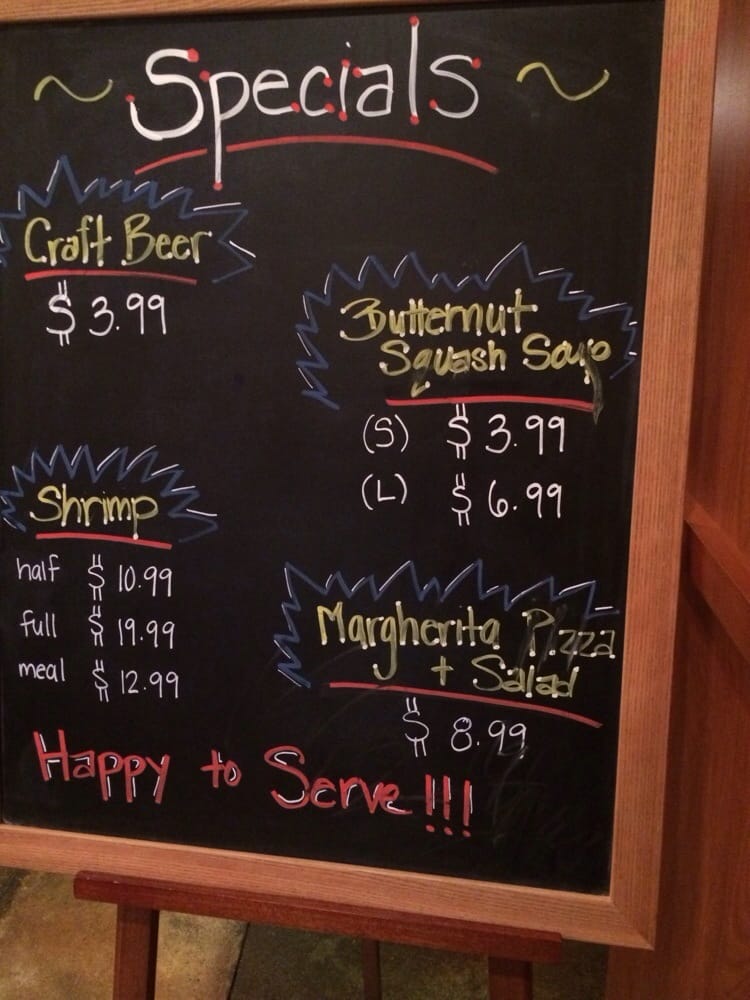 ~ Specials ~
Craft Beer
$ 3.99
Butternut
Squash Soup
(S) $ 3.99
(L) $ 6.99
Shrimp
half $ 10.99
full $ 19.99
meal $ 12.99
Margherita Pizza
+ Salad
$ 8.99
Happy to Serve!!!